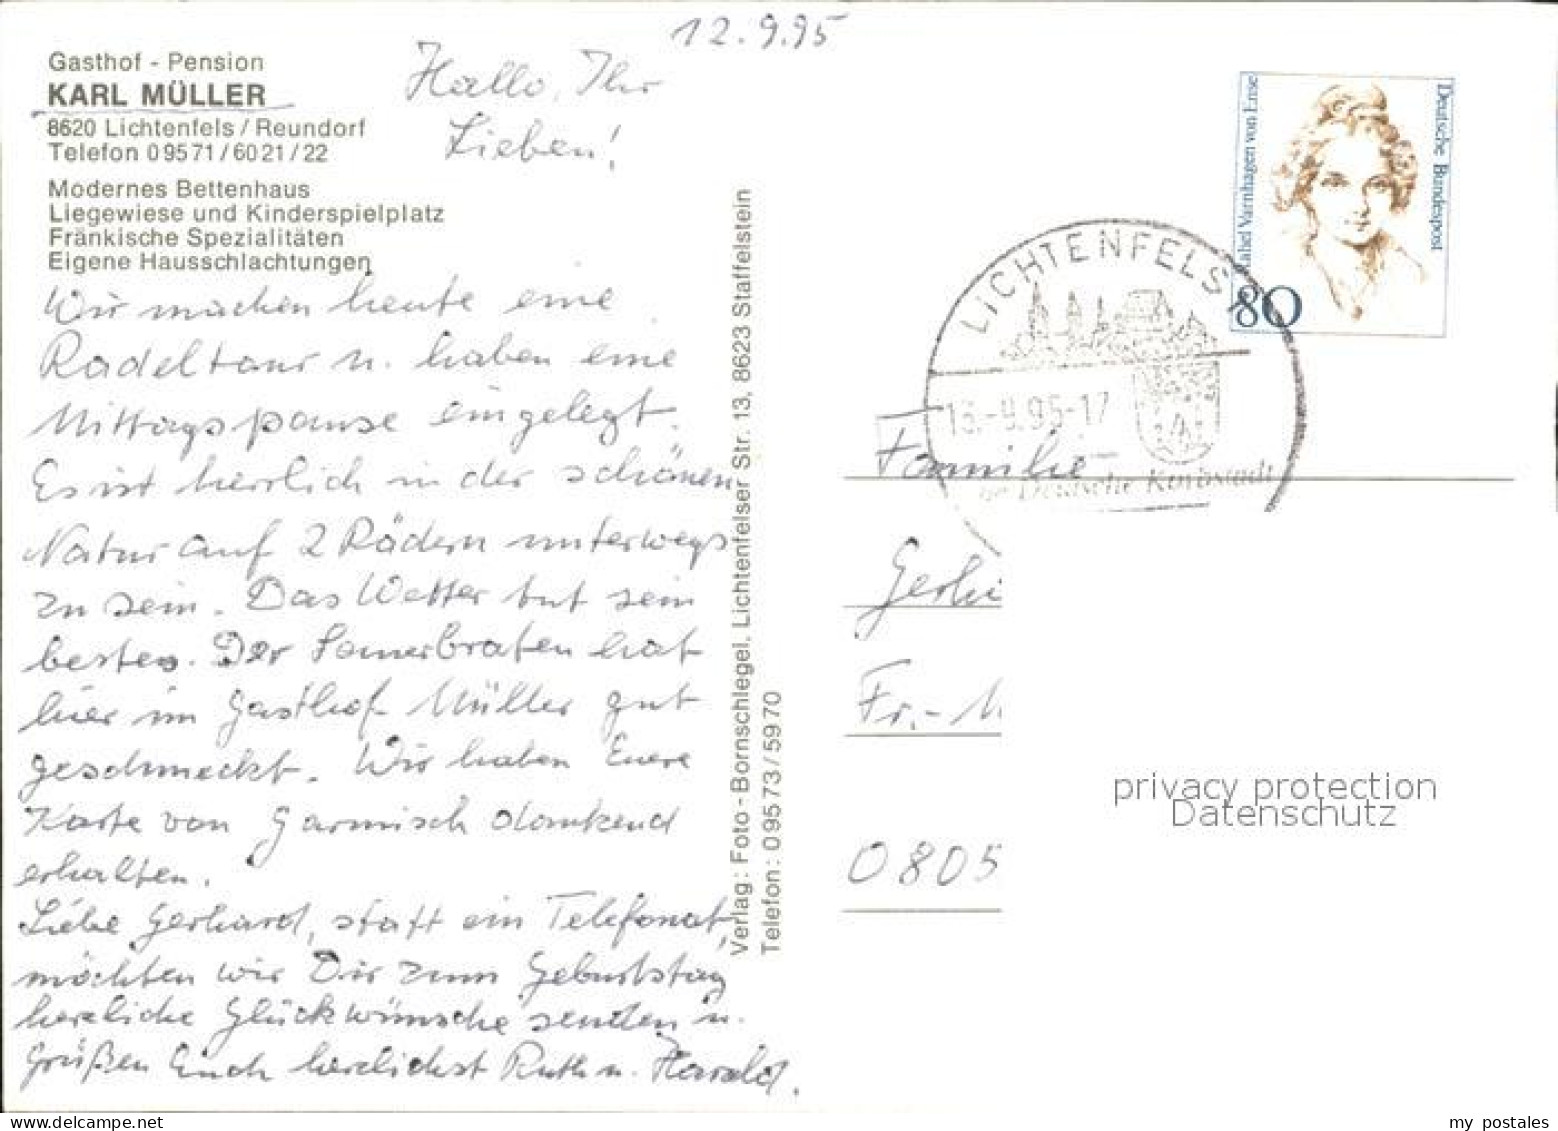 12.9.95
Gasthof - Pension
KARL MÜLLER
8620 Lichtenfels / Reundorf
Telefon 0 95 71 / 60 21 / 22
Modernes Bettenhaus
Liegewiese und Kinderspielplatz
Fränkische Spezialitäten
Eigene Hausschlachtungen
Hallo, Ihr
Lieben!
Wir machen heute eine
Radeltour u. haben eine
Mittagspause eingelegt.
Es ist herrlich in der schönen
Natur auf 2 Rädern unterwegs
zu sein. Das Wetter tut sein
bestes. Der Sauerbraten hat
hier im Gasthof Müller gut
geschmeckt. Wir haben Euere
Karte von Garmisch dankend
erhalten.
Liebe Gerhard, statt ein Telefonat,
möchten wir Dir zum Geburtstag
herzliche Glückwünsche senden u.
Grüßen Euch herzlichst Ruth u. Harald.
Verlag: Foto - Bornschlegel, Lichtenfelser Str. 13, 8623 Staffelstein
Telefon: 0 95 73 / 59 70
Rahel Varnhagen von Ense
Deutsche Bundespost
80
LICHTENFELS
13.-9.95-17
Deutsche Korbstadt
Familie
Gerh
Fr.-
0805
privacy protection
Datenschutz
my postales